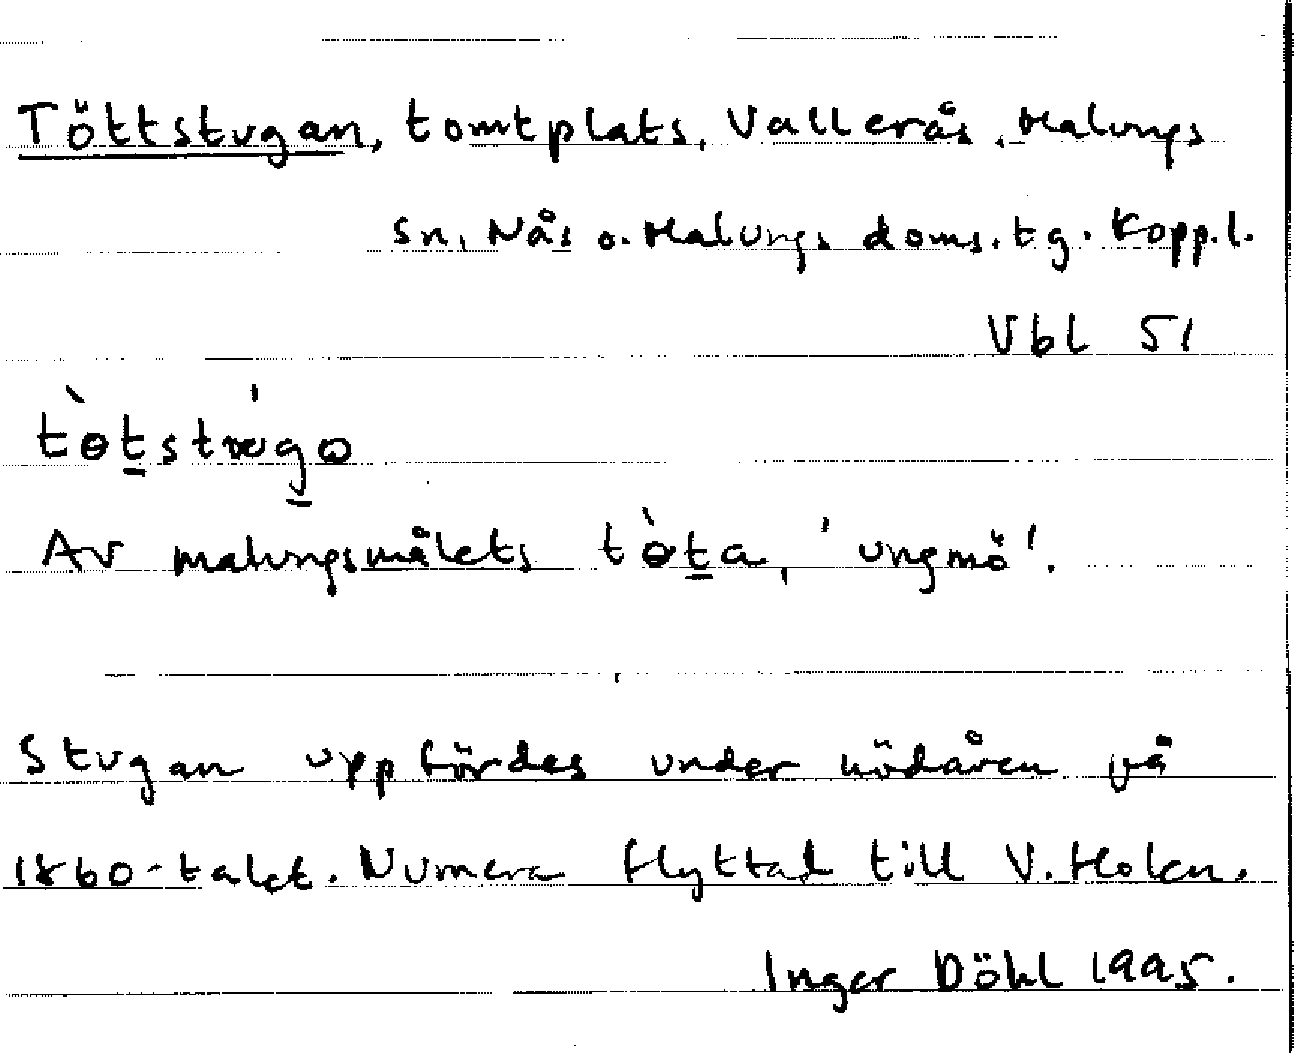 Töttstugan, tomtplats, Vallerås, Malungs
sn, Nås o. Malungs doms. tg. Kopp.l.
Vbl 51
tɵ̀t̠stǿg̠ɷ
Av malungsmålets tɵ̀t̠a, 'ungmö'.
Stugan uppfördes under nödåren på
1860-talet. Numera flyttad till V. Holen.
Inger Döhl 1995.